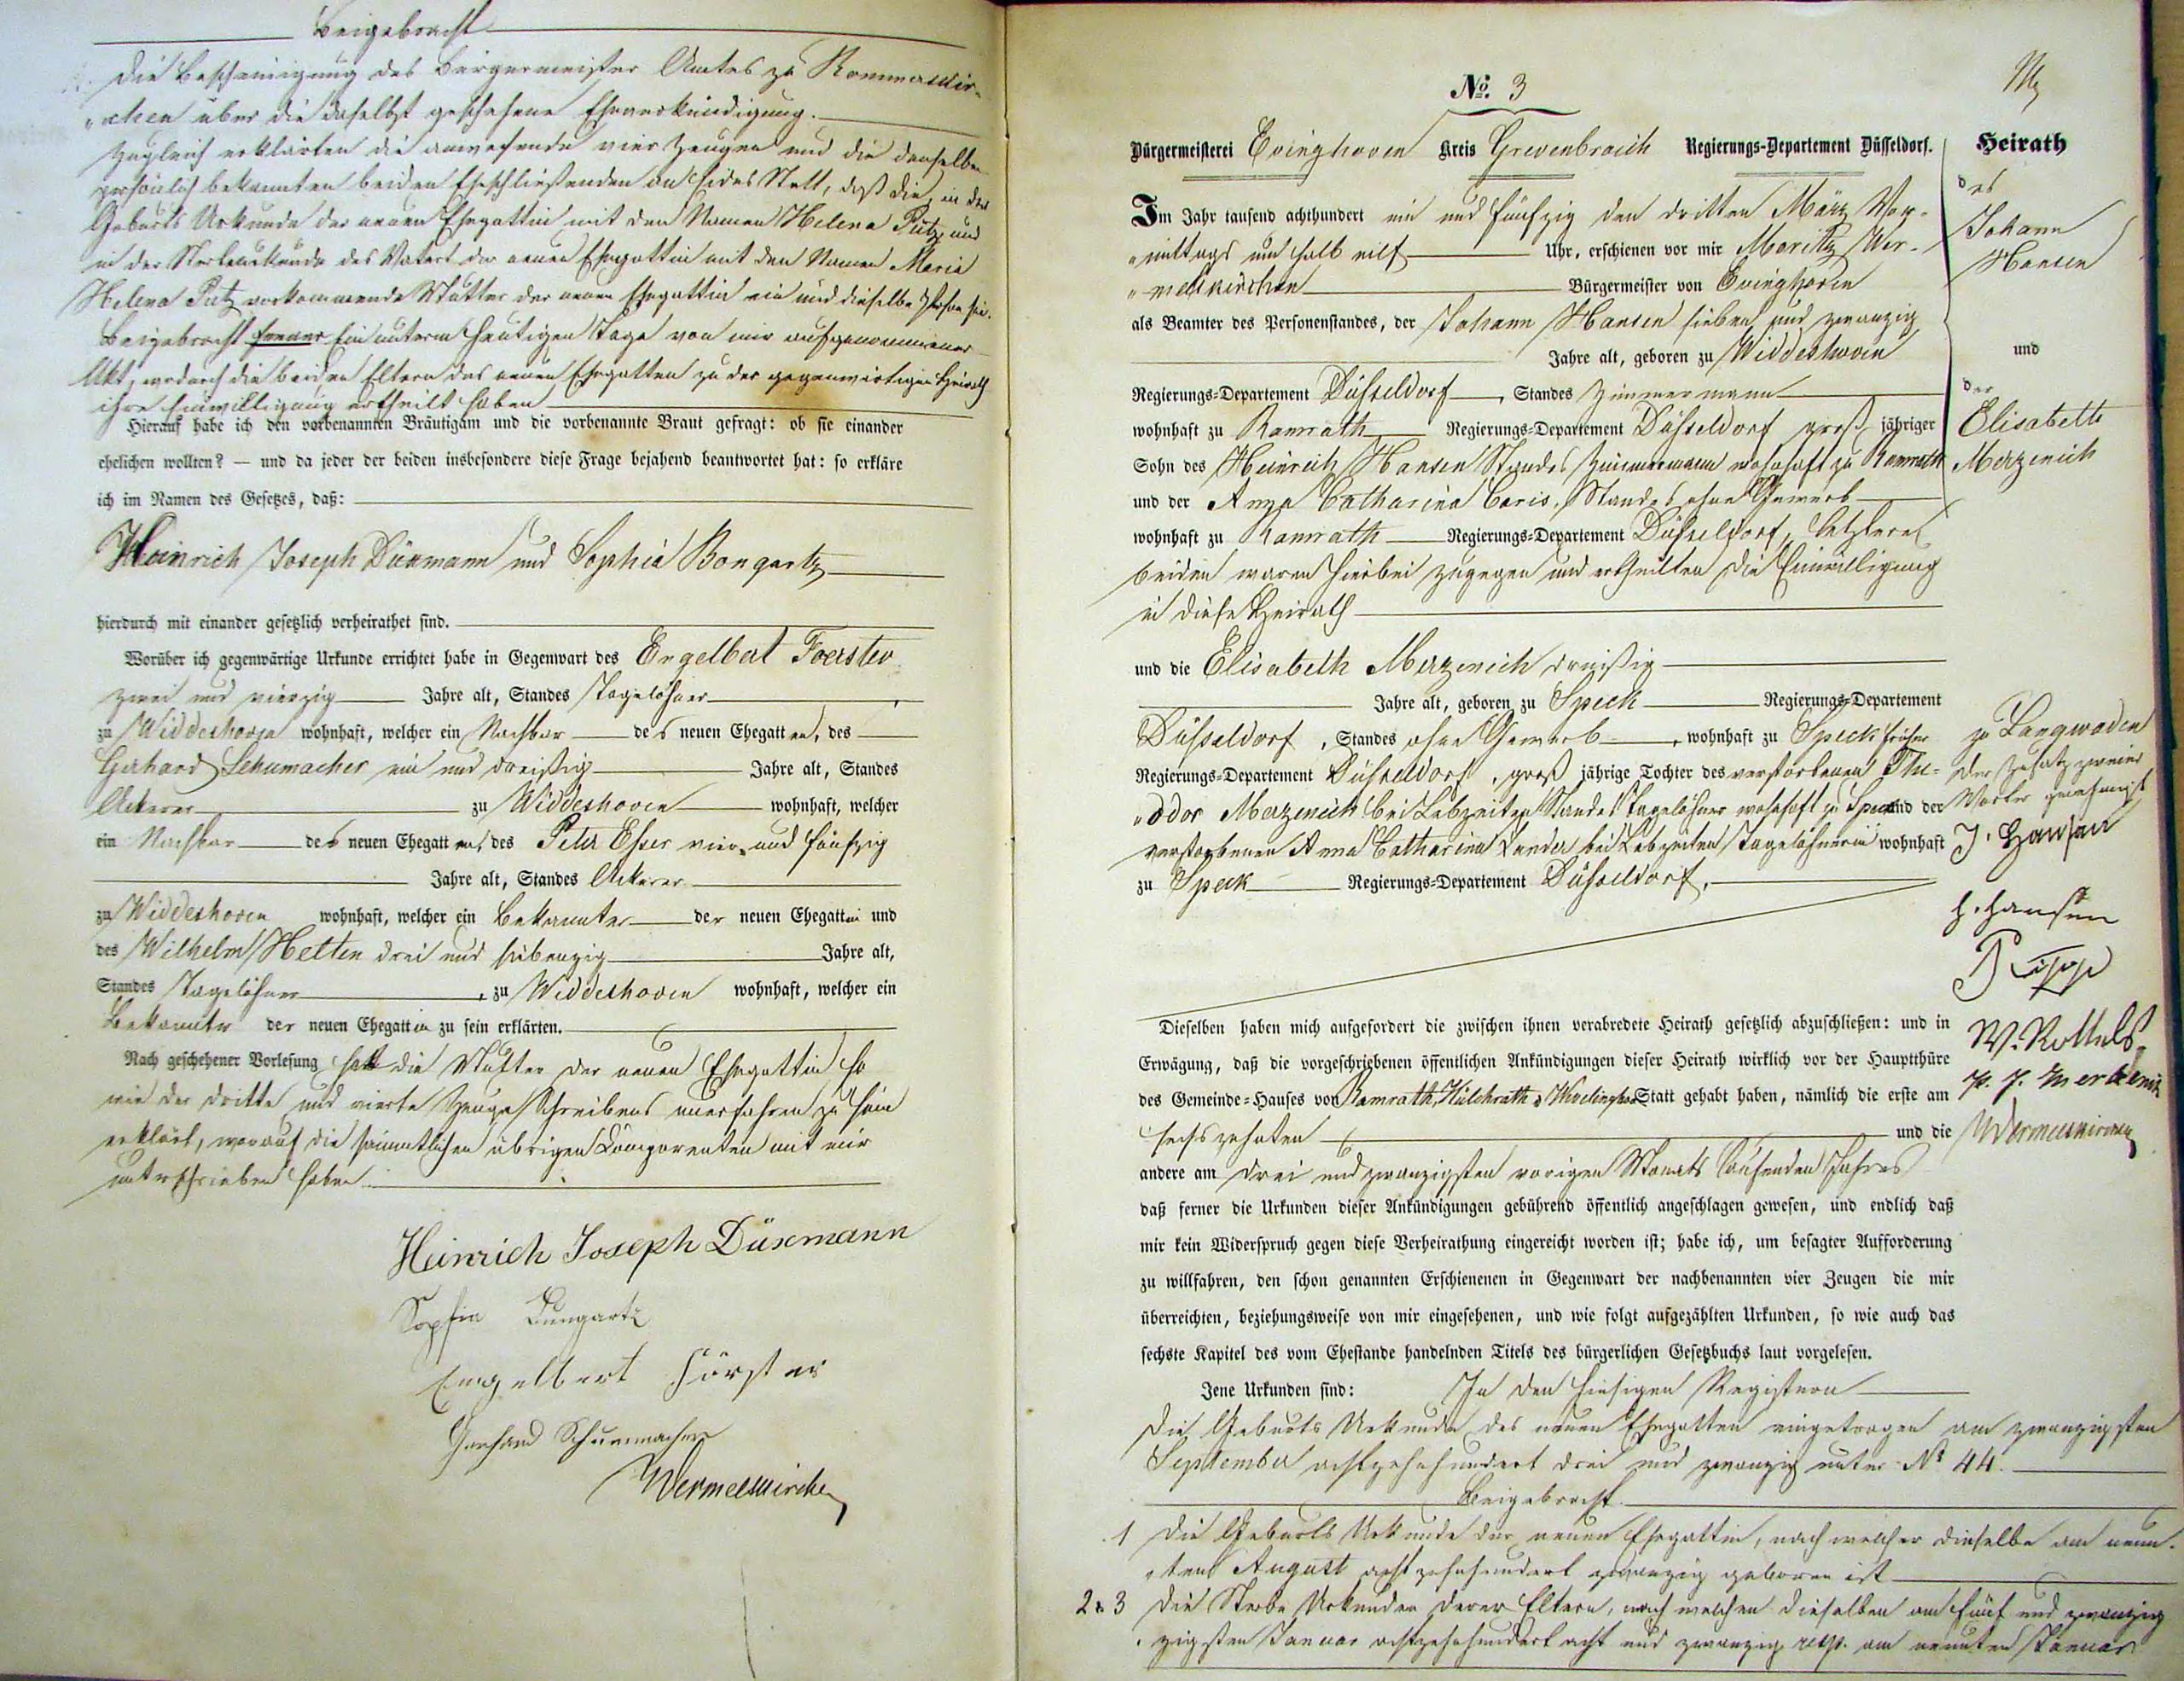 Beigebracht
die Bescheinigung des Bürgermeister Amtes zu Rommerskir-
"chen über die daselbst geschehene Eheverkündigung.
Zugleich erklärten die anwesende vier Zeugen und die denselben
persönlich bekannten beiden Eheschließenden an Eides Statt, daß die, in der
Geburts Urkunde der neuen Ehegattin mit den Namen Helena Putz und
in der Sterbeurkunde des Vaters der neuen Ehegattin mit den Namen Maria
Helena Putz vorkommende Mutter der neuen Ehegattin ein und dieselbe Person sei.
Beigebracht ferner Ein unterm heutigen Tage von mir aufgenommener
Akt, wodurch die beiden Eltern des neuen Ehegatten zu der gegenwärtigen Heirath
ihre Einwilligung ertheilt haben
Hierauf habe ich den vorbenannten Bräutigam und die vorbenannte Braut gefragt: ob sie einander
ehelichen wollten? — und da jeder der beiden insbesondere diese Frage bejahend beantwortet hat: so erkläre
ich im Namen des Gesetzes, daß:
Heinrich Joseph Düxmann und Sophia Bongartz
hierdurch mit einander gesetzlich verheirathet sind.
Worüber ich gegenwärtige Urkunde errichtet habe in Gegenwart des Engelbert Foerster
zwei und vierzig Jahre alt, Standes Tagelöhner,
zu Widdeshoven wohnhaft, welcher ein Nachbar des neuen Ehegatten, des
Gerhard Schumacher ein und dreißig Jahre alt, Standes
Ackerer zu Widdeshoven wohnhaft, welcher
ein Nachbar des neuen Ehegatten, des Peter Esser vier und fünfzig
Jahre alt, Standes Ackerer
zu Widdeshoven wohnhaft, welcher ein Bekannter der neuen Ehegattin und
des Wilhelm Hetten drei und siebenzig Jahre alt,
Standes Tagelöhner, zu Widdeshoven wohnhaft, welcher ein
Bekannter der neuen Ehegattin zu sein erklärten.
Nach geschehener Vorlesung hat die Mutter der neuen Ehegattin so
wie der dritte und vierte Zeuge Schreibens unerfahren zu sein
erklärt, worauf die sämmtlichen übrigen Comparenten mit mir
unterschrieben haben.
Heinrich Joseph Düxmann
Sophia Bungartz
Engelbert Förster
Gerhard Schummacher
Wermelskirchen
No. 3
Bürgermeisterei Evinghoven Kreis Grevenbroich Regierungs-Departement Düsseldorf.
Im Jahr tausend achthundert ein und fünfzig den dritten März Vor-
"mittags um halb eilf Uhr, erschienen vor mir Moritz Wer-
"melskirchen Bürgermeister von Evinghoven
als Beamter des Personenstandes, der Johann Hansen sieben und zwanzig
Jahre alt, geboren zu Widdeshoven
Regierungs-Departement Düsseldorf, Standes Zimmermann
wohnhaft zu Ramrath Regierungs-Departement Düsseldorf groß jähriger
Sohn des Heinrich Hansen Standes Zimmermann wohnhaft zu Ramrath
und der Anna Catharina Caris, Standes ohne Gewerb
wohnhaft zu Ramrath Regierungs-Departement Düsseldorf, letztere
beiden waren hierbei zugegen und ertheilten die Einwilligung
in diese Heirath
und die Elisabeth Merzenich dreißig
Jahre alt, geboren zu Speck Regierungs-Departement
Düsseldorf, Standes ohne Gewerb, wohnhaft zu Speck früher
Regierungs-Departement Düsseldorf, groß jährige Tochter des verstorbenen The-
"odor Merzenich bei Lebzeiten Standes Tagelöhner wohnhaft zu Speck und der
verstorbenen Anna Catharina bei Lebzeiten Tagelöhnerin wohnhaft
zu Speck Regierungs-Departement Düsseldorf.
Dieselben haben mich aufgefordert die zwischen ihnen verabredete Heirath gesetzlich abzuschließen: und in
Erwägung, daß die vorgeschriebenen öffentlichen Ankündigungen dieser Heirath wirklich vor der Hauptthüre
des Gemeinde-Hauses von Ramrath, Hülchrath & Wevelinghoven Statt gehabt haben, nämlich die erste am
sechszehnten und die
andere am drei und zwanzigsten vorigen Monats laufenden Jahres
daß ferner die Urkunden dieser Ankündigungen gebührend öffentlich angeschlagen gewesen, und endlich daß
mir kein Widerspruch gegen diese Verheirathung eingereicht worden ist; habe ich, um besagter Aufforderung
zu willfahren, den schon genannten Erschienenen in Gegenwart der nachbenannten vier Zeugen die mir
überreichten, beziehungsweise von mir eingesehenen, und wie folgt aufgezählten Urkunden, so wie auch das
sechste Kapitel des vom Ehestande handelnden Titels des bürgerlichen Gesetzbuchs laut vorgelesen.
Jene Urkunden sind: In den hiesigen Registern
die Geburts Urkunde des neuen Ehegatten eingetragen am zwanzigsten
September achtzehnhundert drei und zwanzig unter No 44.
Beigebracht.
1 die Geburts Urkunde der neuen Ehegattin, nach welcher dieselbe am neun-
"ten August achtzehnhundert zwanzig geboren ist
2 & 3 die Sterbe Urkunden deren Eltern, nach welchen dieselben am fünf und zwanzig
zigsten Januar achtzehnhundert acht und zwanzig resp. am neunten Januar
Heirath
des
Johann
Hansen
und
der
Elisabeth
Merzenich
zu Langwaden
der Zusatz zweier
Worter genehmigt
J. Hansen
H. Hansen
W. Rottels
P. J. Mertzenich
Wermelskirchen